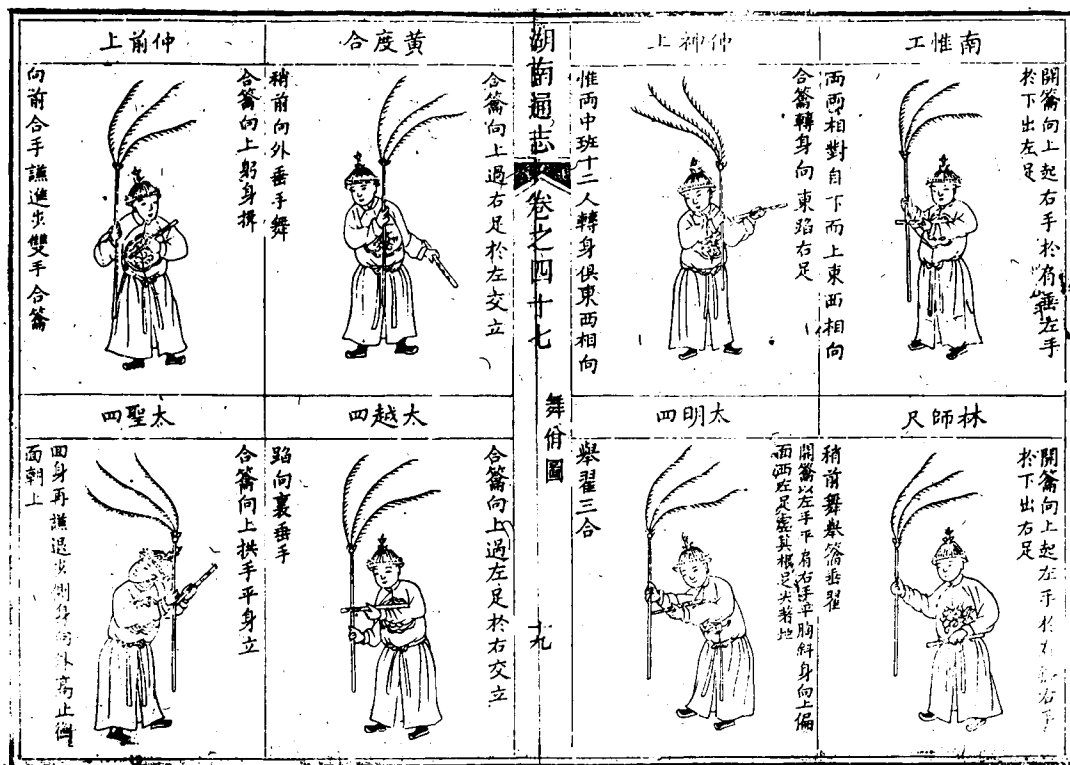 南惟工
開籥向上起右手於肩垂左手
於下出左足
兩兩相對自下而上東西相向
仲神上
合籥轉身向東蹈右足
惟兩中班十二人轉身俱東西相向
林師尺
開籥向上起左手於右下
於下出右足
稍前舞舉籥垂翟
太明四
開籥以左手平肩右手平胸斜身向上偏
面西左足虛其根足尖著地
舉翟三合
湖南通志 卷之四十七
舞佾圖
十九
黃度合
合籥向上過右足於左交立
稍前向外垂手舞
仲前上
合籥向上躬身揖
向前合手謙進步雙手合籥
太越四
合籥向上過左足於右交立
蹈向裏垂手
太聖四
合籥向上拱手平身立
回身再謙退步側身向外高止
面朝上